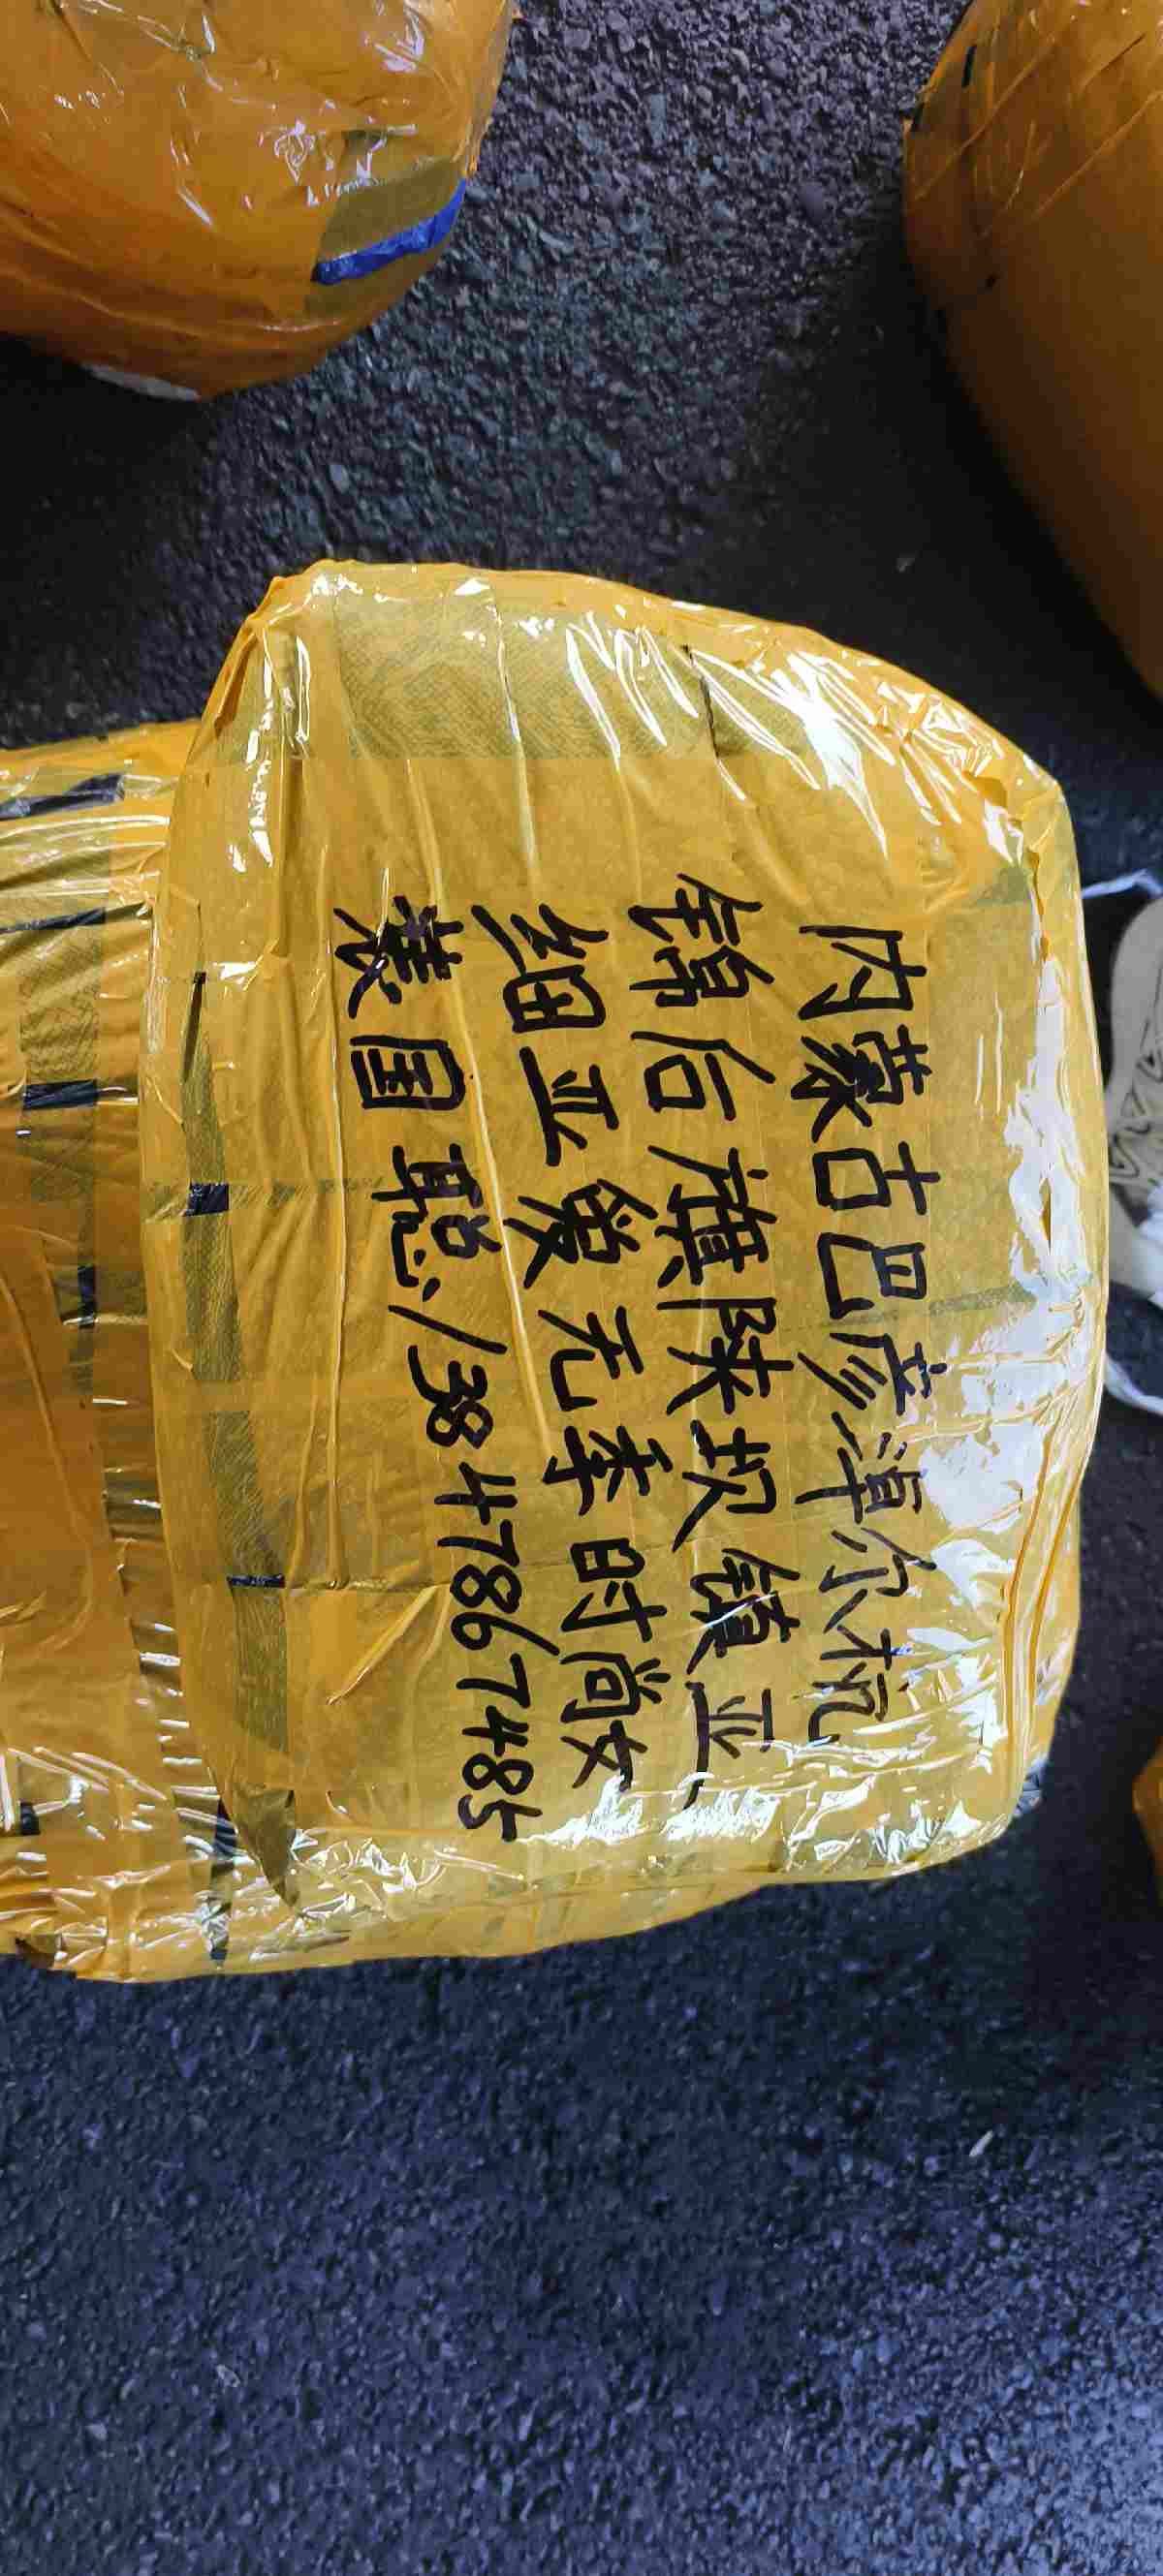 内蒙古巴彦淖尔杭
锦后旗陕坝镇亚
细亚负一元丰时尚女
装国聪、13847867485